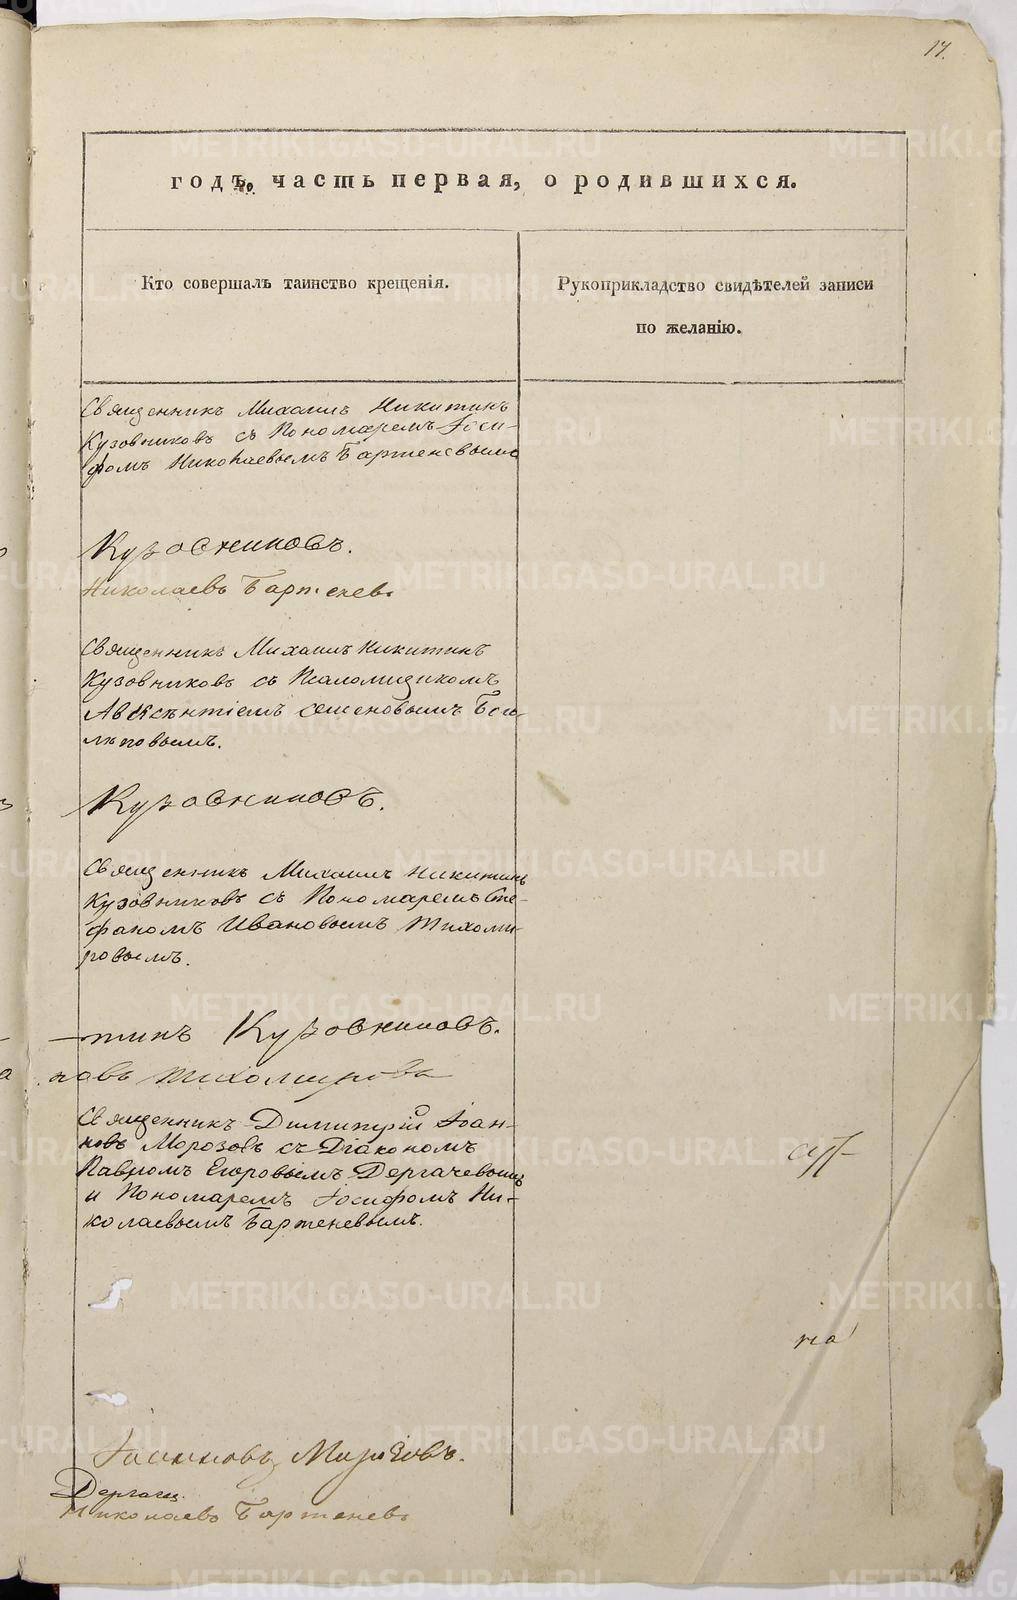 17.
годъ, часть первая, о родившихся.
Кто совершалъ таинство крещенія.
Рукоприкладство свидѣтелей записи
по желанію.
Священникъ Михаилъ Никитинъ
Кузовниковъ съ Пономаремъ Іоси-
фомъ Николаевымъ Бартеневымъ
Кузовниковъ.
Николаевъ Бартеневъ
Священникъ Михаилъ Никитинъ
Кузовниковъ съ Псаломщикомъ
Авксентіемъ Семеновымъ
Кузовниковъ.
Священникъ Михаилъ Никитинъ
Кузовниковъ съ Пономаремъ Сте-
фаномъ Ивановымъ Тихоми-
ровымъ.
-тинъ Кузовниковъ.
новъ Тихомировъ
Священникъ Димитрій Іоан-
новъ Морозовъ съ Діакономъ
Павломъ Егоровымъ Дергачевымъ
и Пономаремъ Іосифомъ Ни-
колаевымъ Бартеневымъ.
на
Іоанновъ Морозовъ.
Николаевъ Бартеневъ
METRIKI.GASO-URAL.RU